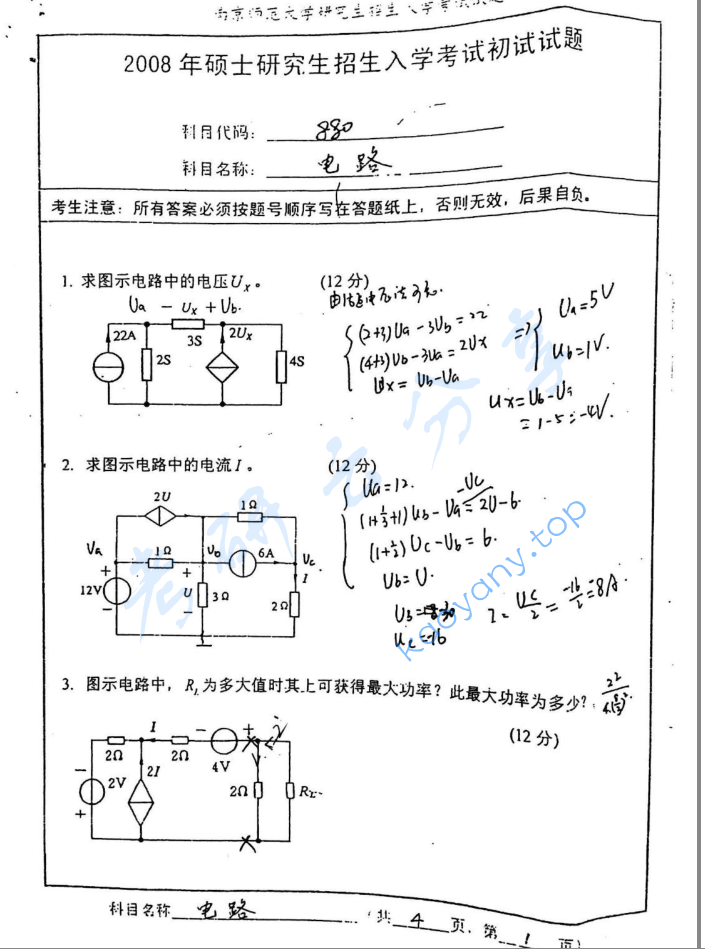 南京师范大学研究生招生入学考试试题
2008 年硕士研究生招生入学考试初试试题
科目代码: 880
科目名称: 电路
考生注意: 所有答案必须按题号顺序写在答题纸上, 否则无效, 后果自负。
1. 求图示电路中的电压Ux。 (12 分)
Ua − Ux + Ub.
22A 2S 3S 2Ux 4S
(2+3)Ua − 3Ub = 22
(4+3)Ub − 3Ua = 2Ux
Ux = Ub − Ua
⇒ Ua = 5V
Ub = 1V.
Ux = Ub − Ua
= 1 − 5 = −4V.
2. 求图示电路中的电流 I。 (12 分)
2U 1Ω
Ua 1Ω 6A Uc
+ + I
12V U 3Ω 2Ω
− −
Ua = 12.
(1+1/3+1)Ub − Ua − Uc = 2U − 6.
(1+1/2)Uc − Ub = 6.
Ub = U.
Uc = −16
I = Uc/2 = −16/2 = 8A.
3. 图示电路中, RL 为多大值时其上可获得最大功率? 此最大功率为多少?
(12 分)
I − +
2Ω 2Ω 4V
− 2V + 2I 2Ω RL
科目名称 电路 (共 4 页, 第 1 页)
考研云分享
kaoyany.top